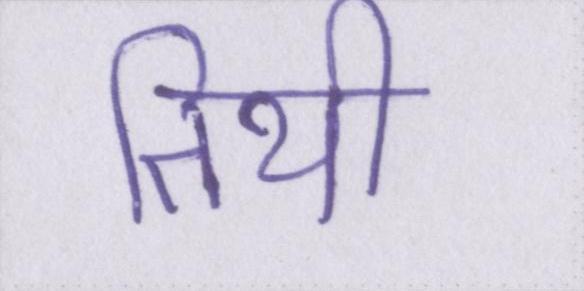 तिथी